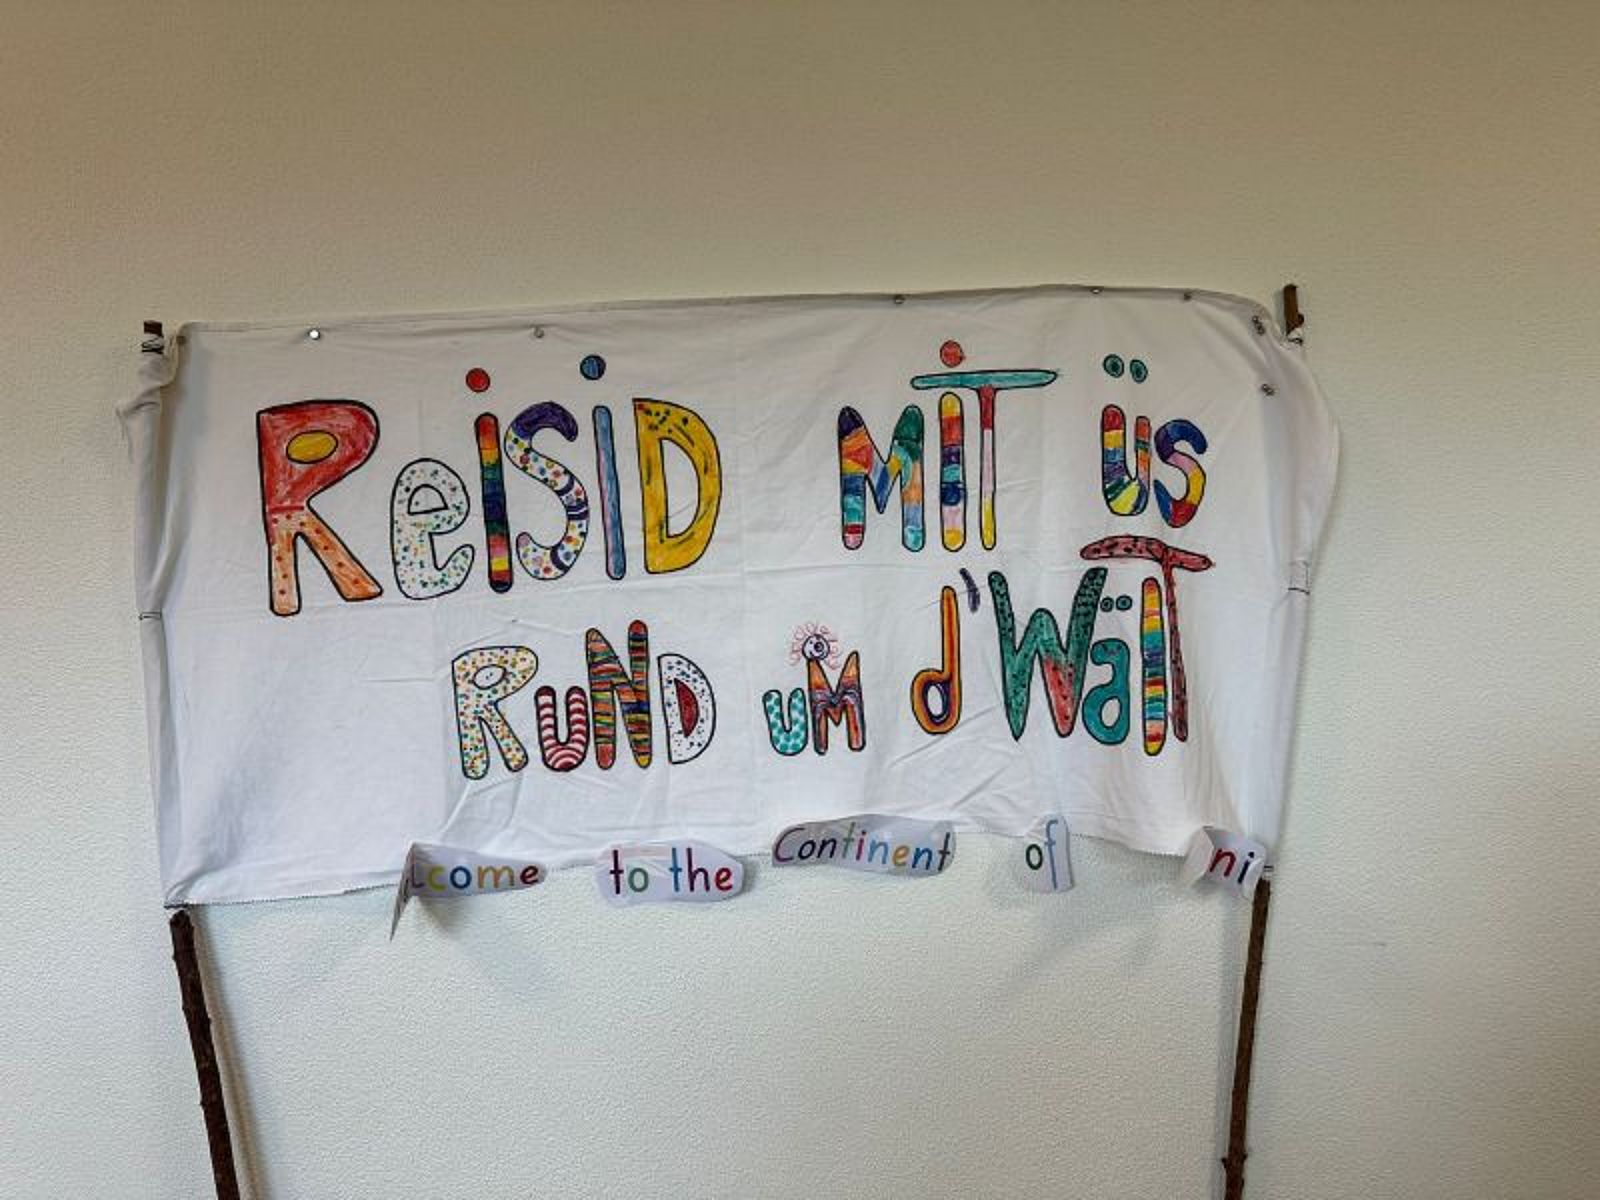 ReiSiD MiT üS
RuND uM d'WälT
come to the Continent of